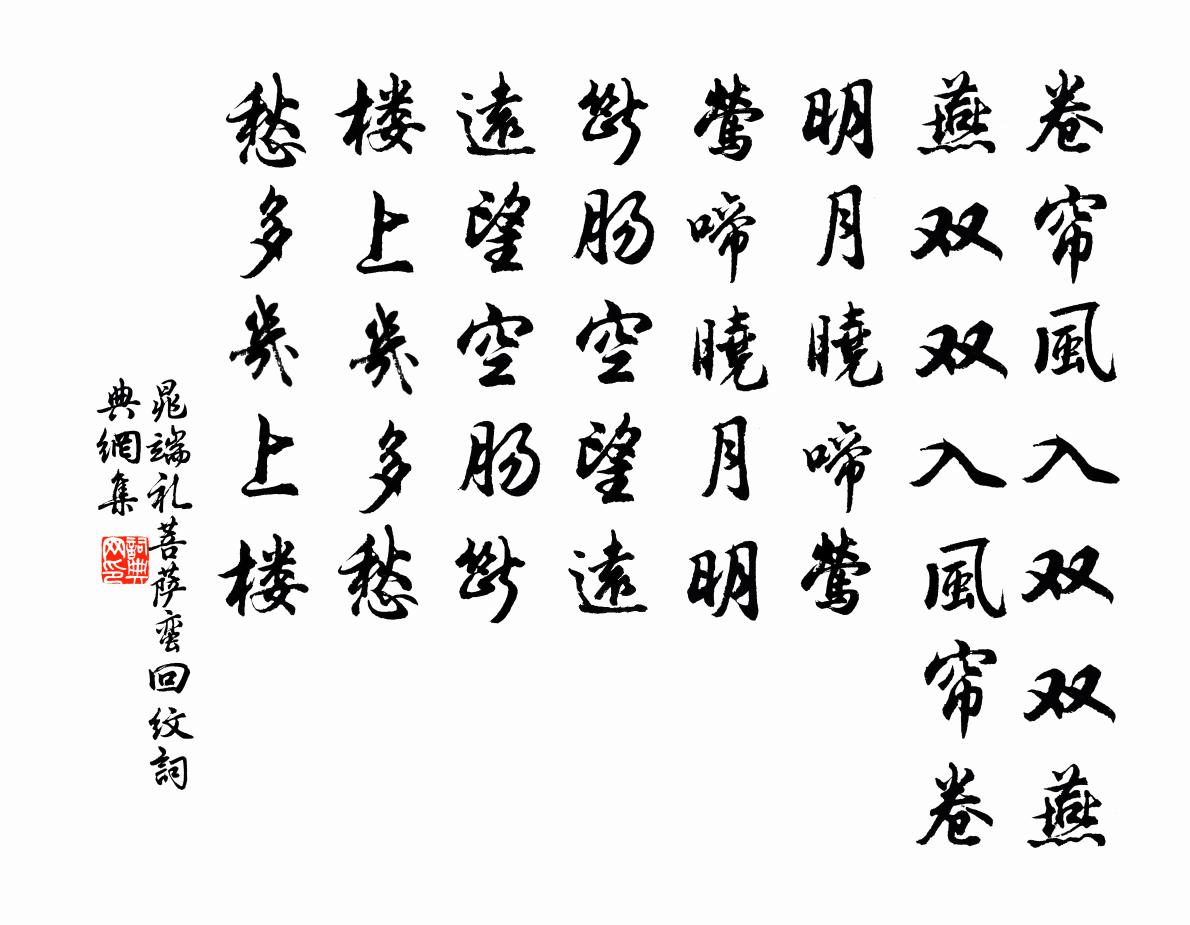 卷帘風入双双燕
燕双双入風帘卷
明月曉啼鶯
鶯啼曉月明
断肠空望遠
遠望空肠断
楼上幾多愁
愁多幾上楼
晁端礼菩萨蛮回纹詞
典網集
詞典网印